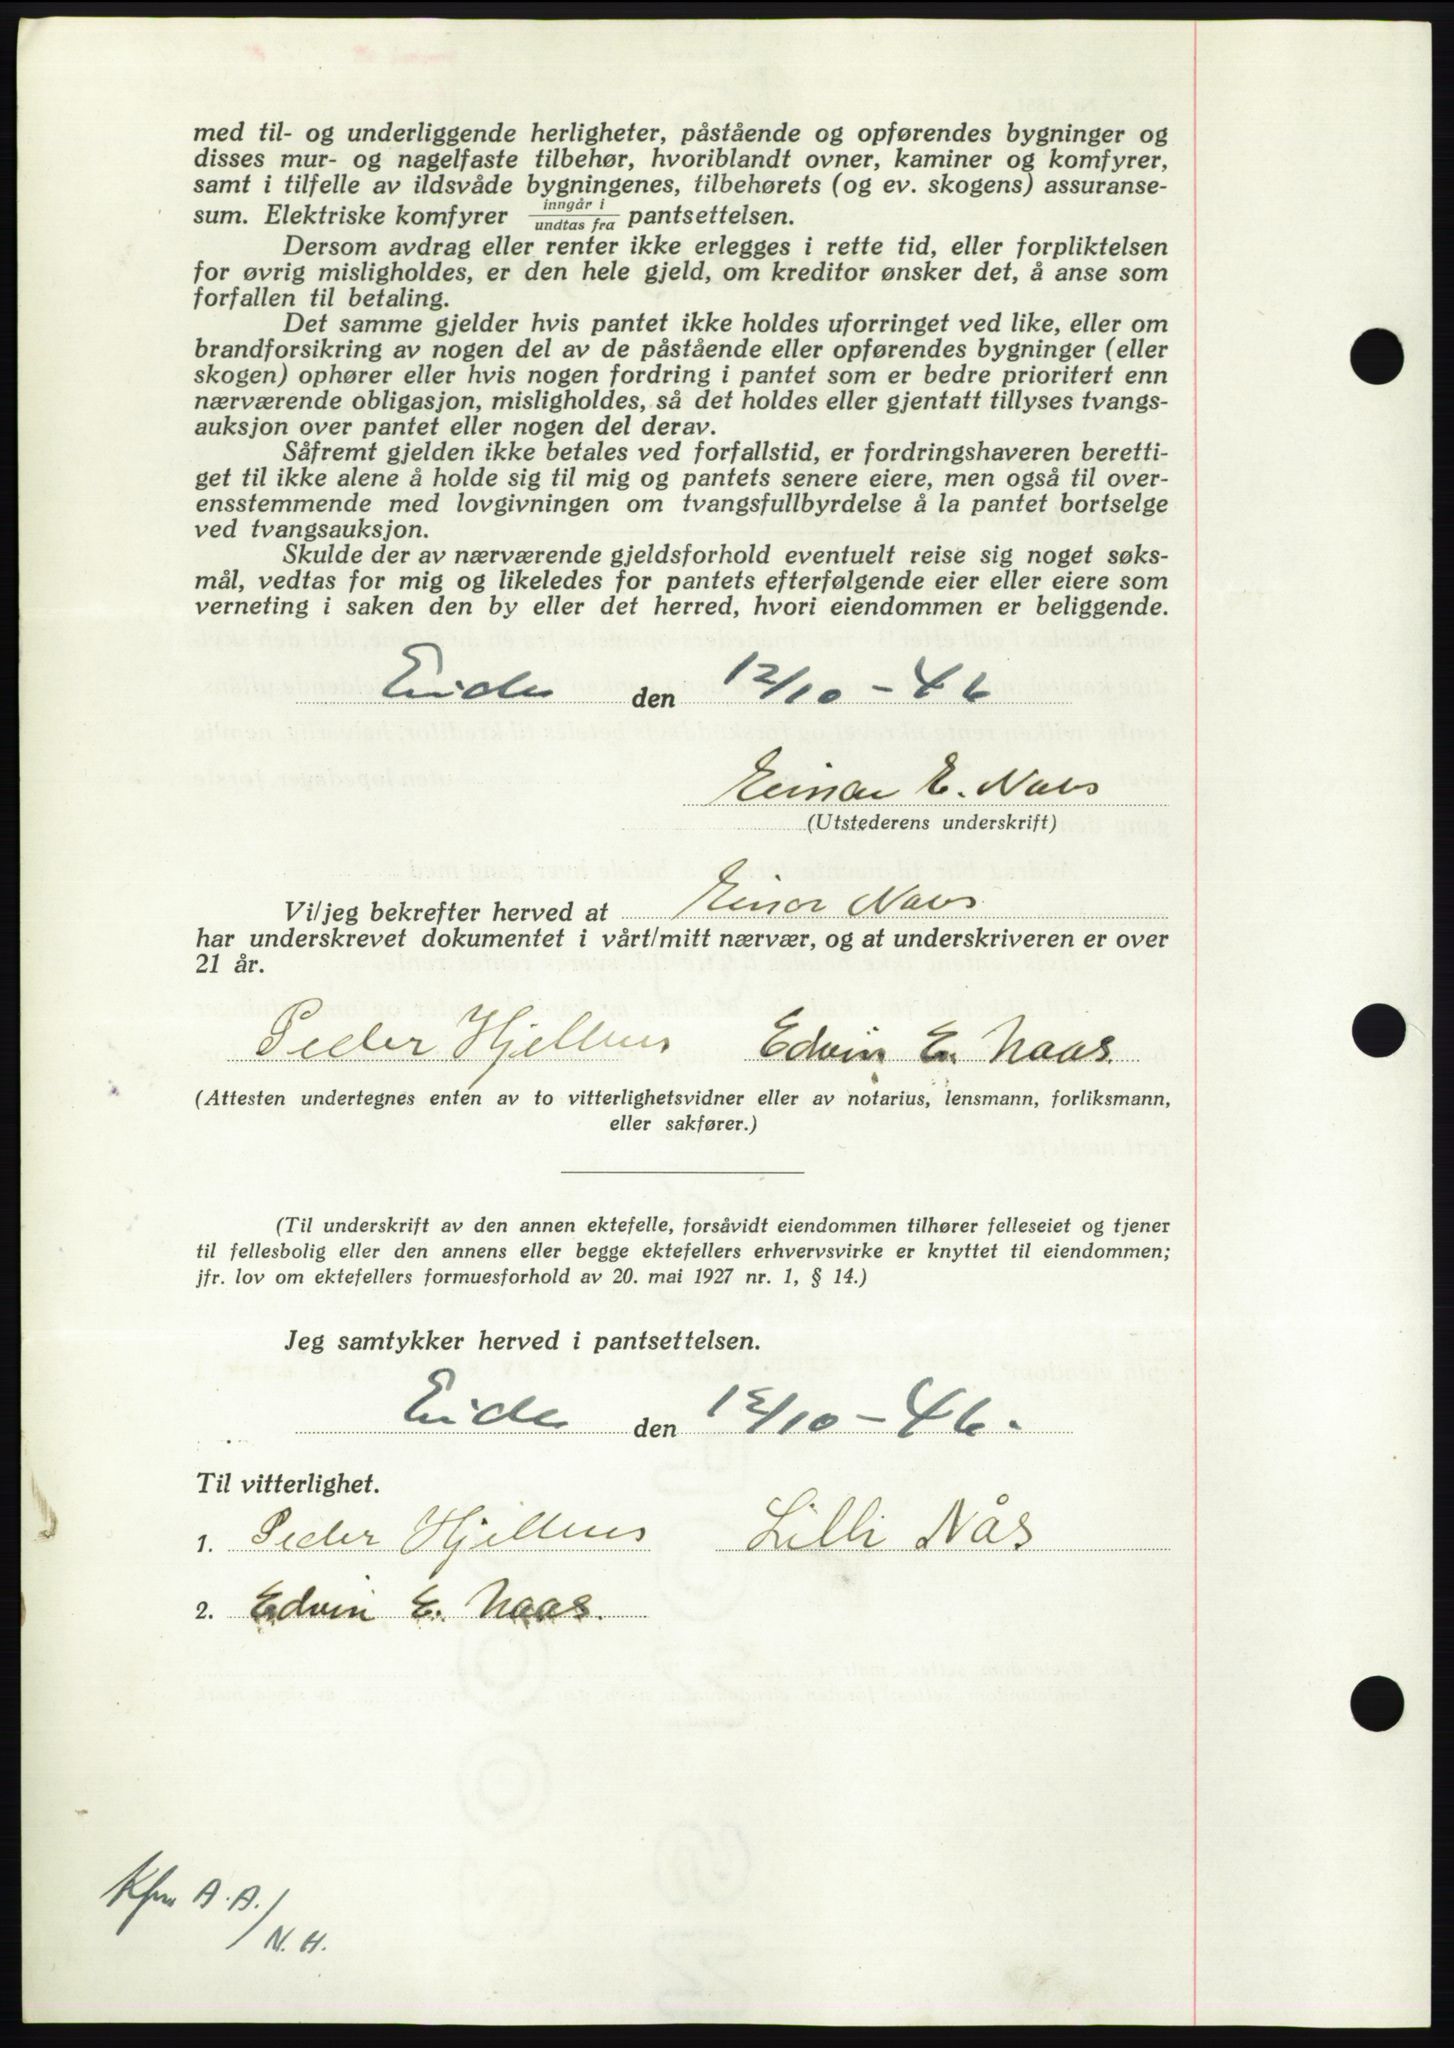 med til- og underliggende herligheter, påstående og opførendes bygninger og
disses mur- og nagelfaste tilbehør, hvoriblandt ovner, kaminer og komfyrer,
samt i tilfelle av ildsvåde bygningenes, tilbehørets (og ev. skogens) assuranse-
sum. Elektriske komfyrer inngår i / undtas fra pantsettelsen.
Dersom avdrag eller renter ikke erlegges i rette tid, eller forpliktelsen
for øvrig misligholdes, er den hele gjeld, om kreditor ønsker det, å anse som
forfallen til betaling.
Det samme gjelder hvis pantet ikke holdes uforringet ved like, eller om
brandforsikring av nogen del av de påstående eller opførendes bygninger (eller
skogen) ophører eller hvis nogen fordring i pantet som er bedre prioritert enn
nærværende obligasjon, misligholdes, så det holdes eller gjentatt tillyses tvangs-
auksjon over pantet eller nogen del derav.
Såfremt gjelden ikke betales ved forfallstid, er fordringshaveren beretti-
get til ikke alene å holde sig til mig og pantets senere eiere, men også til over-
ensstemmende med lovgivningen om tvangsfullbyrdelse å la pantet bortselge
ved tvangsauksjon.
Skulde der av nærværende gjeldsforhold eventuelt reise sig noget søks-
mål, vedtas for mig og likeledes for pantets efterfølgende eier eller eiere som
verneting i saken den by eller det herred, hvori eiendommen er beliggende.
Eide den 12/10-46
Einar E. Naas
(Utstederens underskrift)
Vi/jeg bekrefter herved at Einar Naas
har underskrevet dokumentet i vårt/mitt nærvær, og at underskriveren er over
21 år.
Peder Hjellnes Edvin E. Naas.
(Attesten undertegnes enten av to vitterlighetsvidner eller av notarius, lensmann, forliksmann,
eller sakfører.)
(Til underskrift av den annen ektefelle, forsåvidt eiendommen tilhører felleseiet og tjener
til fellesbolig eller den annens eller begge ektefellers erhvervsvirke er knyttet til eiendommen;
jfr. lov om ektefellers formuesforhold av 20. mai 1927 nr. 1, § 14.)
Jeg samtykker herved i pantsettelsen.
Eide den 12/10-46.
Til vitterlighet.
1. Peder Hjellnes Lilli Nås
2. Edvin E. Naas.
A.A./
N.H.